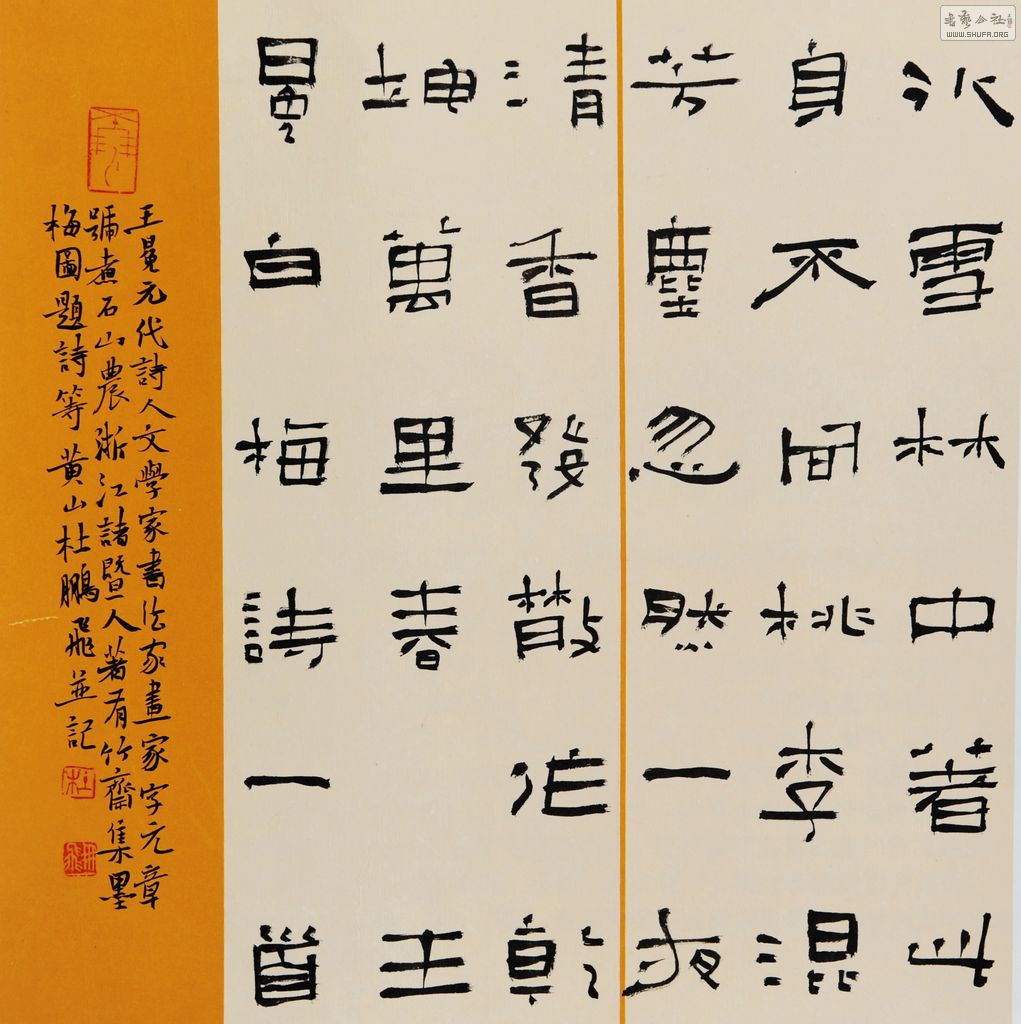 冰雪林中著此
身不同桃李混
芳塵忽然一夜
清香發散作乾
坤萬里春 王
冕白梅詩一首
王冕元代詩人文學家書法家畫家字元章
號煮石山農浙江諸暨人著有竹齋集墨
梅圖題詩等黃山杜鵬飛並記
杜
書藝公社
WWW.SHUFA.ORG